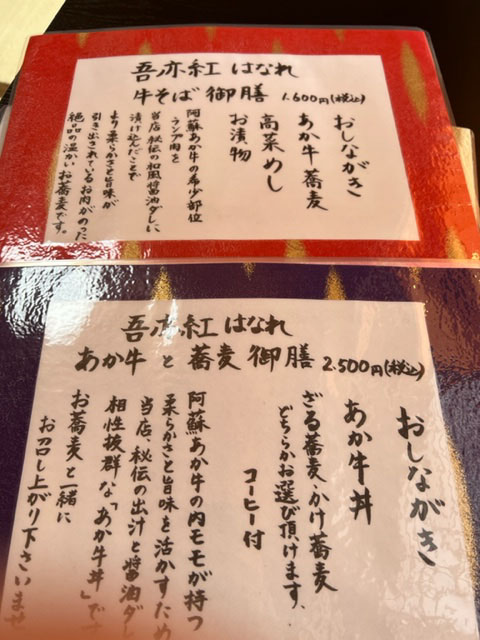 吾亦紅 はなれ
牛そば 御膳 1,600円(税込)
おしながき
あか牛蕎麦
高菜めし
お漬物
阿蘇あか牛の希少部位
ランプ肉を
当店秘伝の和風醤油ダレに
漬け込んだことで
より柔らかさと旨味が
引き出されているお肉がのった
絶品の温かいお蕎麦です。
吾亦紅 はなれ
あか牛 と 蕎麦 御膳 2,500円(税込)
おしながき
あか牛丼
ざる蕎麦・かけ蕎麦
どちらかお選び頂けます。
コーヒー付
阿蘇あか牛の内モモが持つ
柔らかさと旨味を活かすため
当店、秘伝の出汁と醤油ダレ
相性抜群な「あか牛丼」です
お蕎麦と一緒に
お召し上がり下さいませ